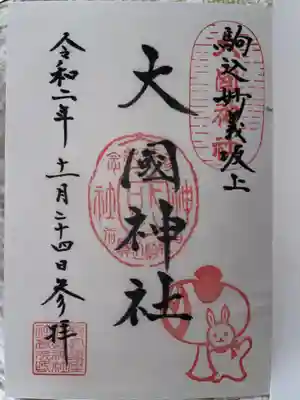 駒込妙義坂上
大國神社
令和二年十一月二十四日参拝